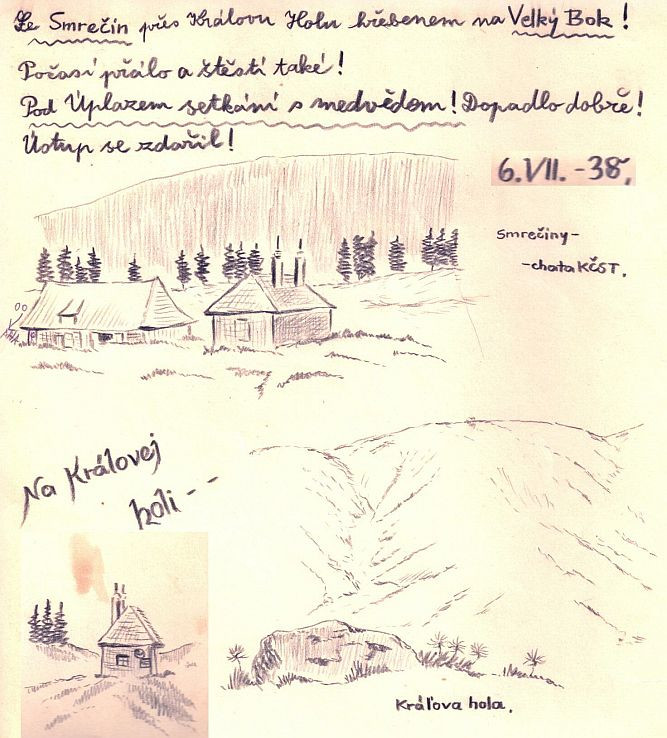 Ze Smrečin přes Královu Holu hřebenem na Velký Bok!
Počasí přálo a štěstí také!
Pod Úplazem setkání s medvědem! Dopadlo dobře!
Ústup se zdařil!
6.VII.-38,
Smrečiny-
-chata KČST.
Na Královej
holi--
Kráľova hola.